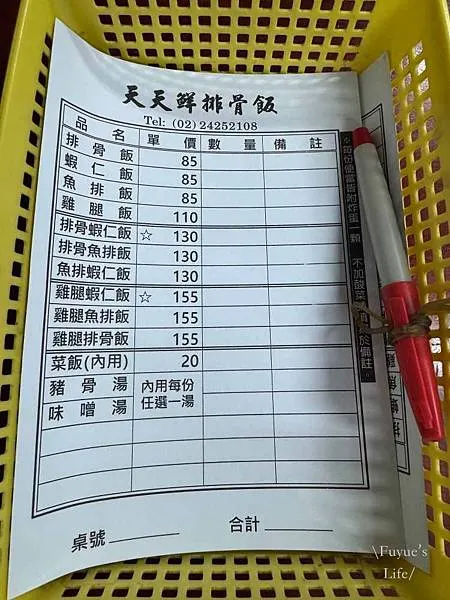 天天鮮排骨飯
Tel: (02) 24252108
品名 單價 數量 備註
排骨飯 85
蝦仁飯 85
魚排飯 85
雞腿飯 110
排骨蝦仁飯 ☆ 130
排骨魚排飯 130
魚排蝦仁飯 130
雞腿蝦仁飯 ☆ 155
雞腿魚排飯 155
雞腿排骨飯 155
菜飯(內用) 20
豬骨湯 內用每份
味噌湯 任選一湯
桌號
合計
※每份便當皆附炸蛋一顆 不加酸菜 於備註。
\Fuyue's
Life/